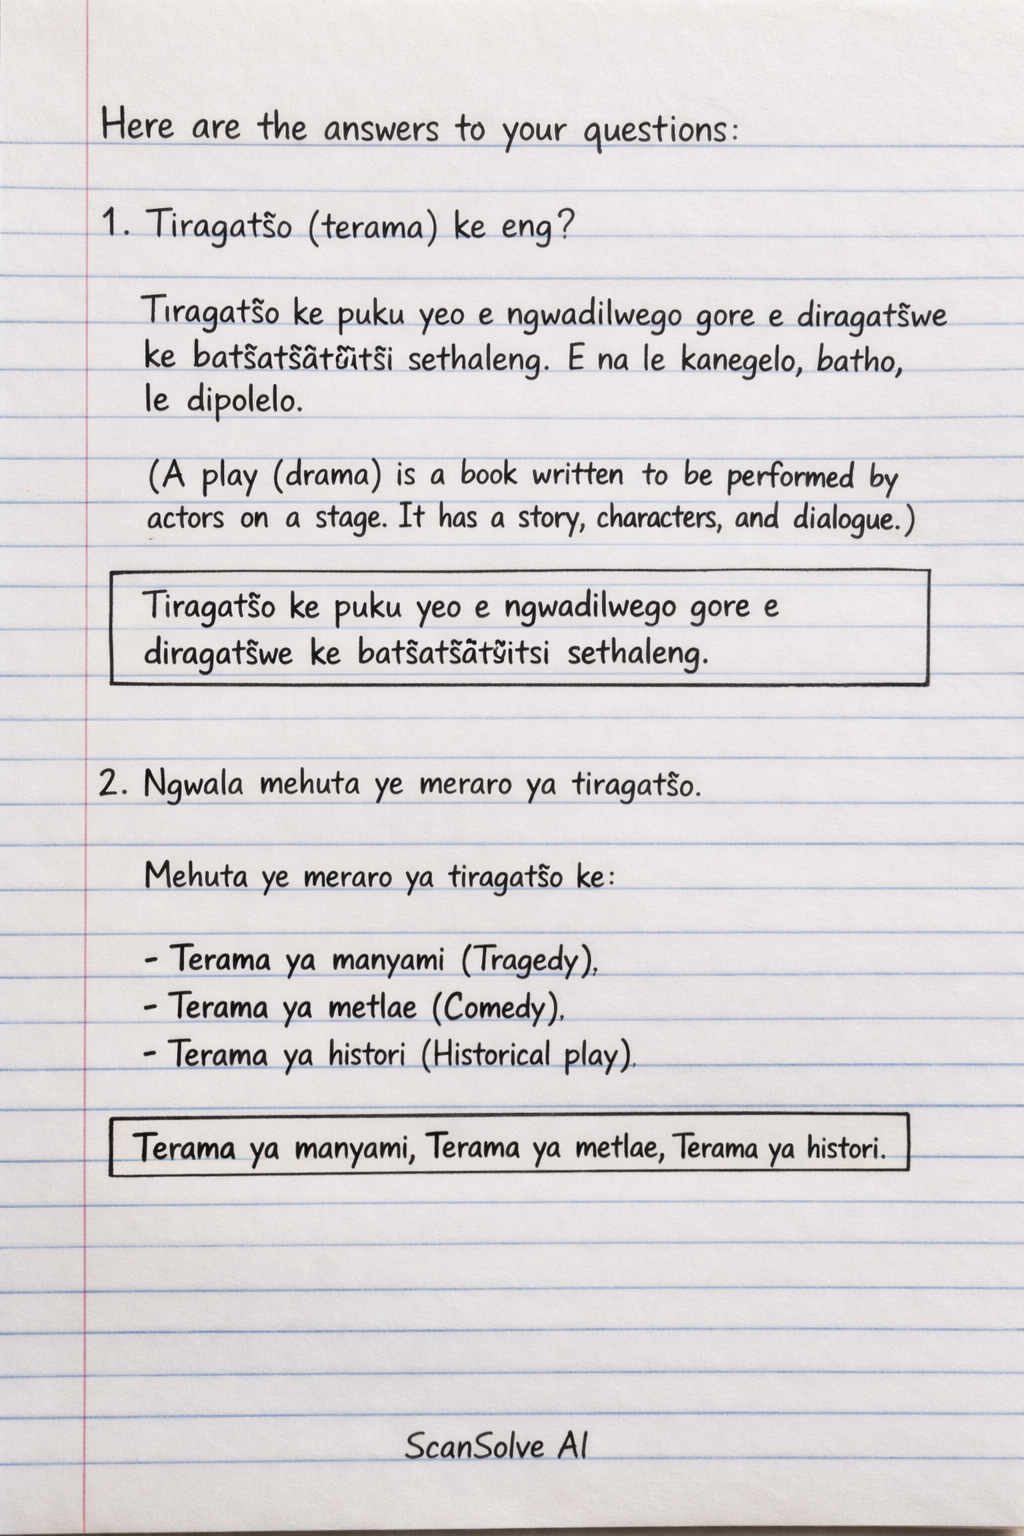 Here are the answers to your questions:
1. Tiragatšo (terama) ke eng?
Tiragatšo ke puku yeo e ngwadilwego gore e diragatšwe
ke sethaleng. E na le kanegelo, batho,
le dipolelo.
(A play (drama) is a book written to be performed by
actors on a stage. It has a story, characters, and dialogue.)
Tiragatšo ke puku yeo e ngwadilwego gore e
diragatšwe ke sethaleng.
2. Ngwala mehuta ye meraro ya tiragatšo.
Mehuta ye meraro ya tiragatšo ke:
- Terama ya manyami (Tragedy),
- Terama ya metlae (Comedy),
- Terama ya histori (Historical play).
Terama ya manyami, Terama ya metlae, Terama ya histori.
ScanSolve AI